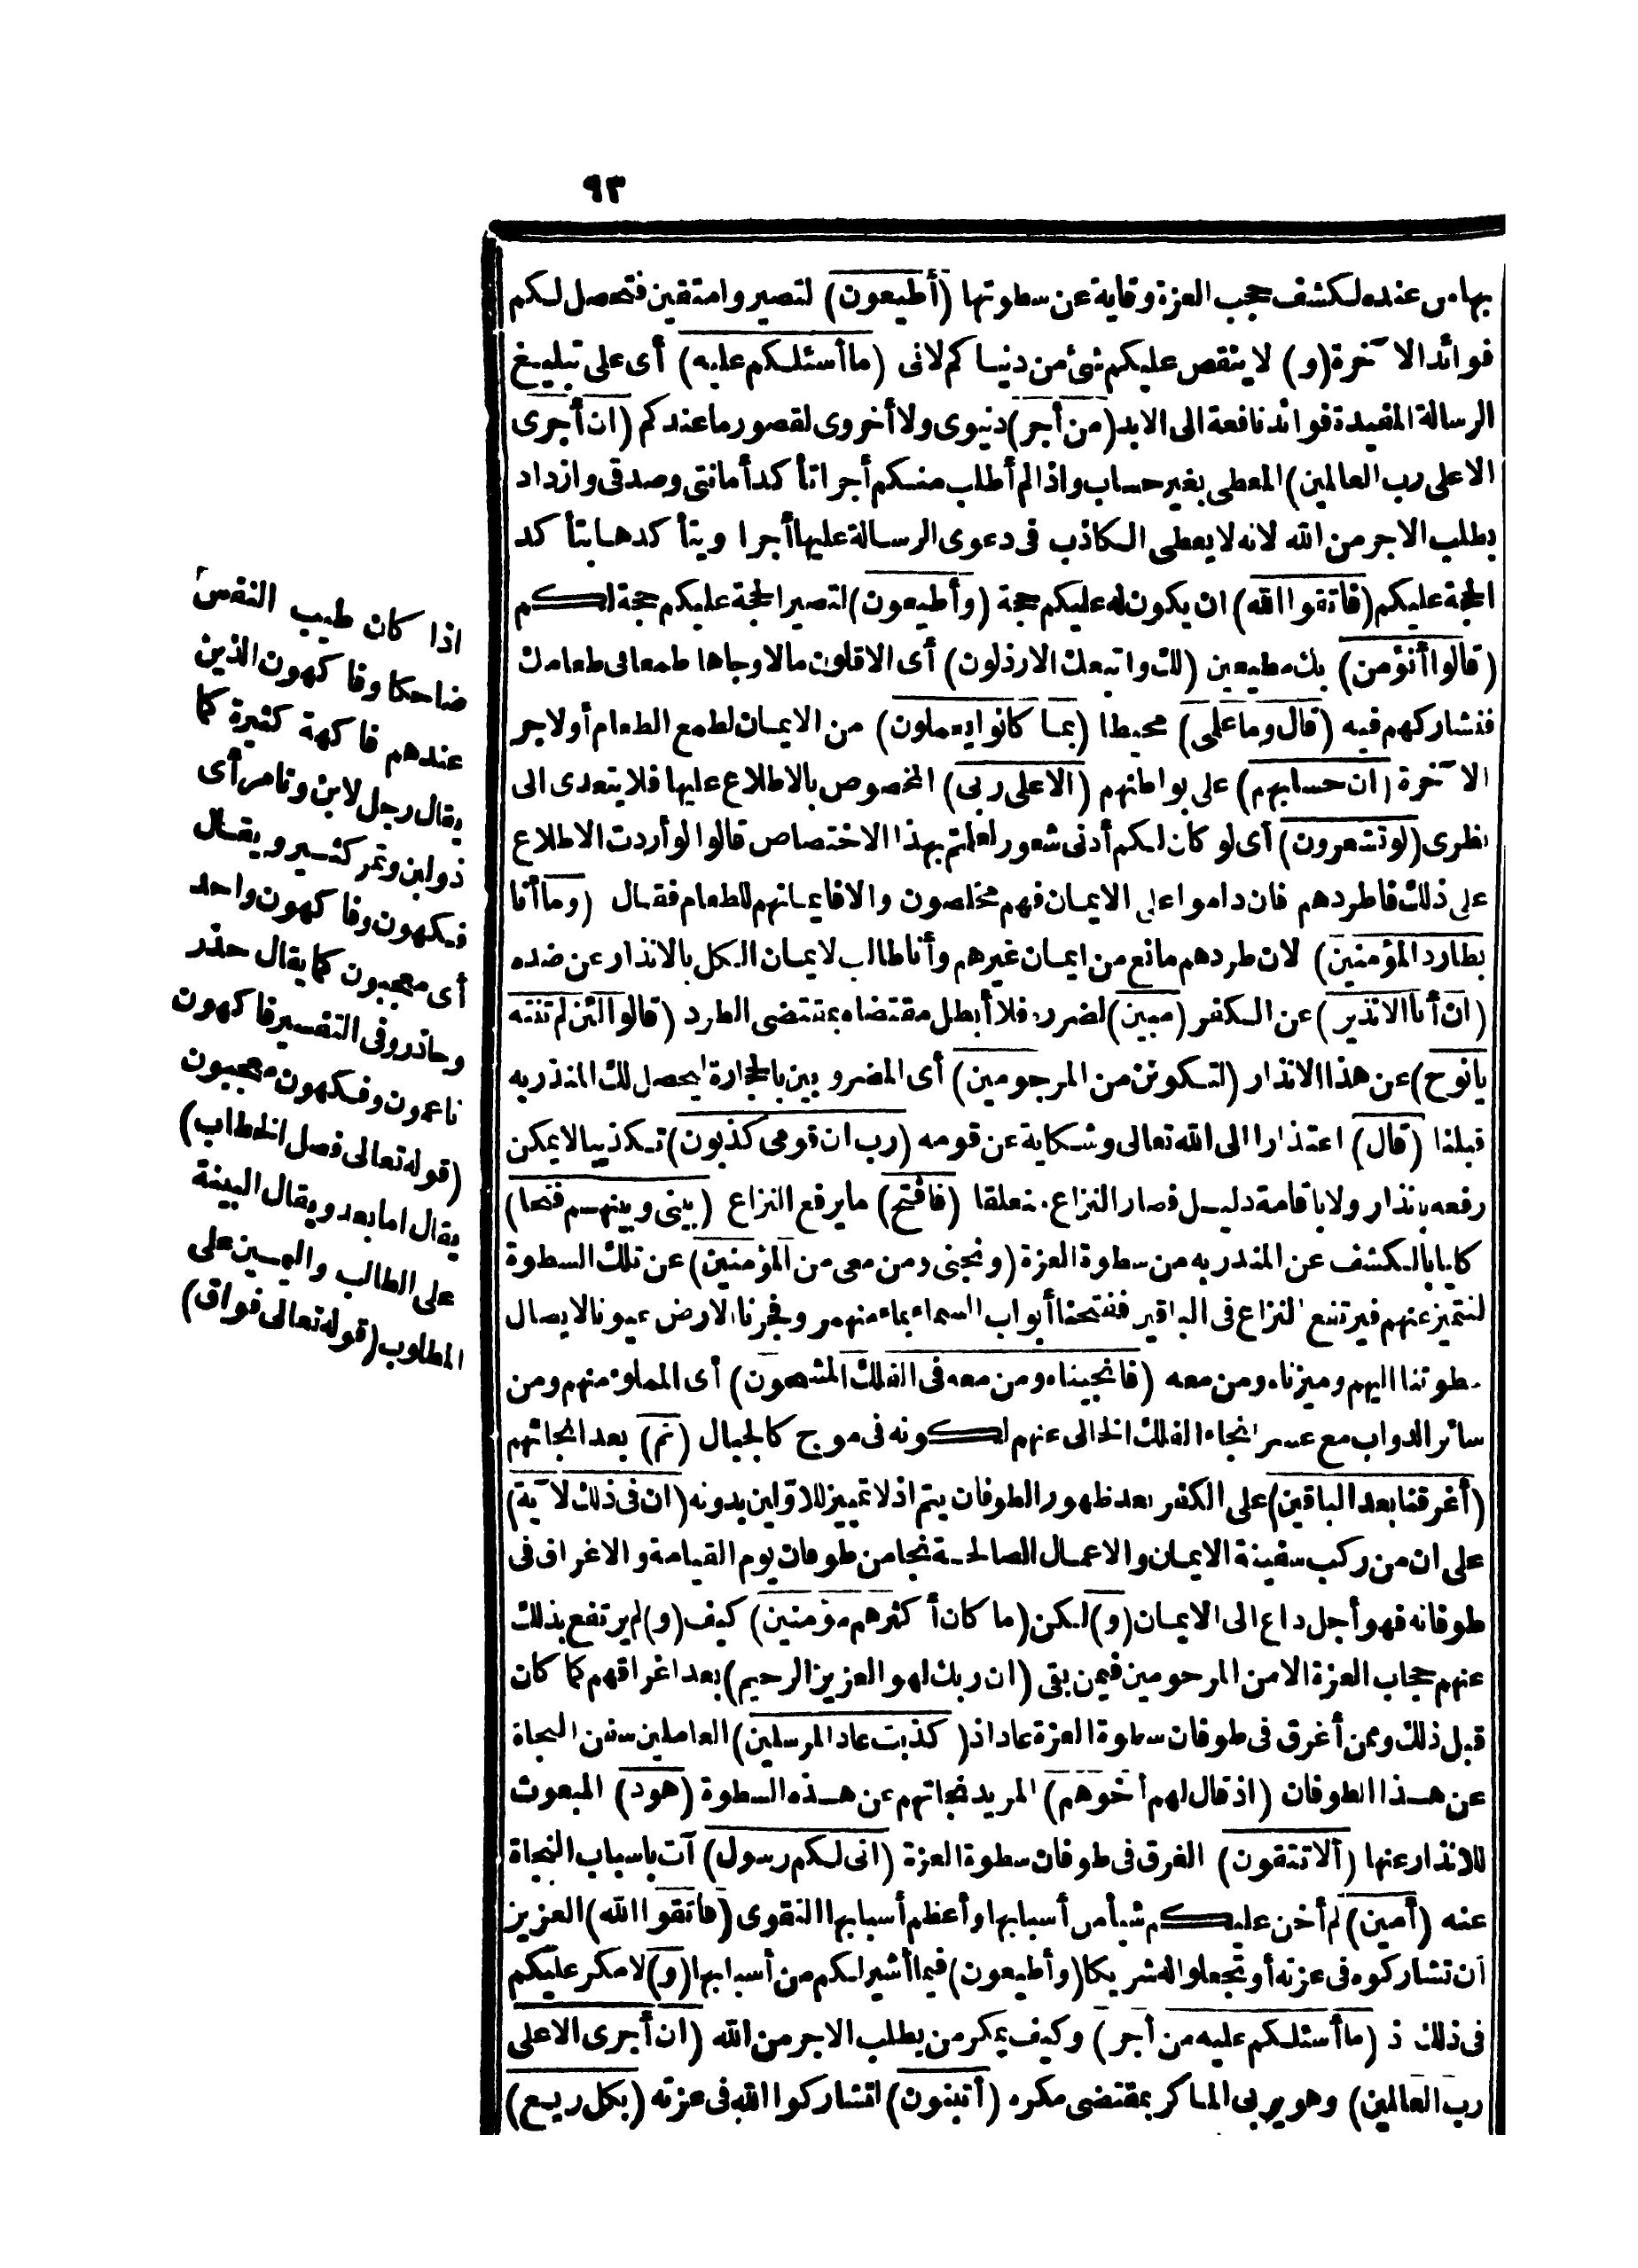 ٩٣
بهامن عنده لكشف حجب العزة وقاية عن سطوتها (أطيعون) لتصيروا متقين فتحصل لكم
فوائد الآخرة (و) لا ينقص عليكم شئ من دنياكم لانى (ما أسئلكم عليه) أى على تبليغ
الرسالة المفيدة فوائد نافعة الى الابد (من أجر) دنيوى ولا أخروى لقصور ما عندكم (ان أجرى
الا على رب العالمين) المعطى بغير حساب واذا لم أطلب منكم أجرا تأكد أمانتى وصدقى وازداد
بطلب الاجر من الله لانه لا يعطى الكاذب فى دعوى الرسالة عليها أجرا ويتأكد هابتأكد
الحجة عليكم (فاتقوا الله) ان يكون له عليكم حجة (وأطيعون) لتصير الحجة عليكم حجة لكم
(قالوا أنؤمن) بك مطيعين (لك واتبعك الارذلون) أى الاقلون مالا وجاها طمعا فى طعامك
فنشاركهم فيه (قال وما على) محيطا (بما كانوا يعملون) من الايمان لطمع الطعام أولاجر
الآخرة (ان حسابهم) على بواطنهم (الا على ربى) المخصوص بالاطلاع عليها فلا يتعدى الى
نظرى (لو تشعرون) أى لو كان لكم أدنى شعور لعلتم بهذا الاختصاص قالوا لو أردت الاطلاع
على ذلك فاطردهم فان داموا على الايمان فهم مخلصون والا فايمانهم للطعام فقال (وما أنا
بطارد المؤمنين) لان طردهم مانع من ايمان غيرهم وأنا طالب لايمان الكل بالانذار عن ضده
(ان أنا الا نذير) عن الكفر (مبين) لضرره فلا أبطل مقتضاه بمقتضى الطرد (قالوا لئن لم تنته
يا نوح) عن هذا الانذار (لتكونن من المرجومين) أى المضروبين بالحجارة ليحصل لك المنذر به
قبلنا (قال) اعتذارا الى الله تعالى وشكاية عن قومه (رب ان قومى كذبون) تكذيبا لا يمكن
رفعه بانذار ولا باقامة دليل فصار النزاع متعلقا (فافتح) ما يرفع النزاع (بينى وبينهم فتحا)
كاملا بالكشف عن المنذر به من سطوة العزة (ونجنى ومن معى من المؤمنين) عن تلك السطوة
لنتميز عنهم فيرتفع النزاع فى الباقين ففتحنا أبواب السماء بماء منهمر وفجرنا الارض عيونا لايصال
سطوتنا اليهم وميزناه ومن معه (فانجيناه ومن معه فى الفلك المشحون) أى المملوء منهم ومن
سائر الدواب مع عسر انجاء الفلك الخالى عنهم لكونه فى موج كالجبال (ثم) بعد انجائهم
(أغرقنا بعد الباقين) على الكفر بعد ظهور الطوفان يتم اذ لا تمييز للاوّلين بدونه (ان فى ذلك لآية)
على ان من ركب سفينة الايمان والاعمال الصالحة نجا من طوفان يوم القيامة والاغراق فى
طوفانه فهو أجل داع الى الايمان (و) لكن (ما كان أكثرهم مؤمنين) كيف (و) لم يرتفع بذلك
عنهم حجاب العزة الا من المرحومين فيمن بقى (ان ربك لهو العزيز الرحيم) بعد اغراقهم كما كان
قبل ذلك وممن أغرق فى طوفان سطوة العزة عاد اذ (كذبت عاد المرسلين) العاملين سفن النجاة
عن هذا الطوفان (اذ قال لهم أخوهم) المريد نجاتهم عن هذه السطوة (هود) المبعوث
للانذار عنها (ألا تتقون) الغرق فى طوفان سطوة العزة (انى لكم رسول) آت باسباب النجاة
عنه (أمين) لم أخن عليكم شيأ من أسبابها وأعظم أسبابها التقوى (فاتقوا الله) العزيز
أن تشاركوه فى عزته أو تجعلوا له شريكا (وأطيعون) فيما أشير لكم من أسبابها (و) لا مكر عليكم
فى ذلك اذ (ما أسئلكم عليه من أجر) وكيف يمكر من يطلب الاجر من الله (ان أجرى الا على
رب العالمين) وهو يربى الماكر بمقتضى مكره (أتبنون) لتشاركوا الله فى عزته (بكل ريع)
اذا كان طيب النفس
ضاحكا وفاكهون الذين
عندهم فاكهة كثيرة كما
يقال رجل لابن وتامر أى
ذو لبن وتمر كثير ويقال
فكهون وفاكهون واحد
أى معجبون كما يقال حذر
وحاذر وفى التفسير فاكهون
ناعمون وفكهون معجبون
(قوله تعالى فصل الخطاب)
يقال اما بعد ويقال البينة
على الطالب واليمين على
المطلوب (قوله تعالى فواق)